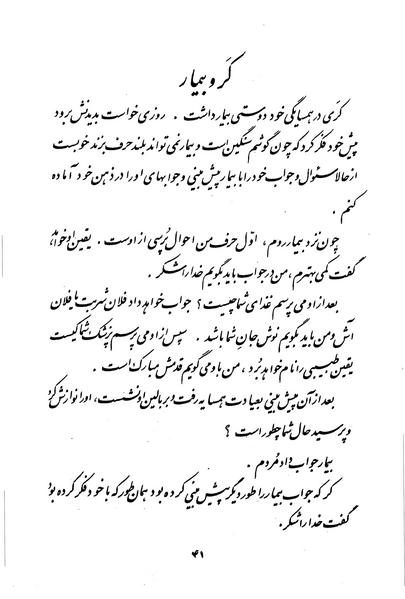 کَر و بیمار
کَری در همسایگی خود دوستی بیمار داشت . روزی خواست بدیدنش برود
پیش خود فکر کرد که چون گوشم سنگین است و بیمار نمی تواند بلند حرف بزند خوبست
از حالا سئوال و جواب خود را با بیمار پیش بینی و جوابهای او را در ذهن خود آماده
کنم .
چون نزد بیمار روم ، اوّل حرف من احوال پُرسی از اوست . یقین او خواهد
گفت کمی بهترم ، من در جواب باید بگویم خدا را شکر .
بعد از او می پرسم غذای شما چیست ؟ جواب خواهد داد فلان شربت یا فلان
آش و من باید بگویم نوش جان شما باشد . سپس از او می پرسم پزشک شما کیست
یقین طبیبی را نام خواهد بُرد ، من باو می گویم قدمش مبارک است .
بعد از آن پیش بینی بعیادت همسایه رفت و بر بالین او نشست ، او را نوازش کرد
و پرسید حال شما چطور است ؟
بیمار جواب داد مُردم .
کر که جواب بیمار را طور دیگر پیش بینی کرده بود همان طور که با خود فکر کرده بود
گفت خدا را شکر .
۴۱